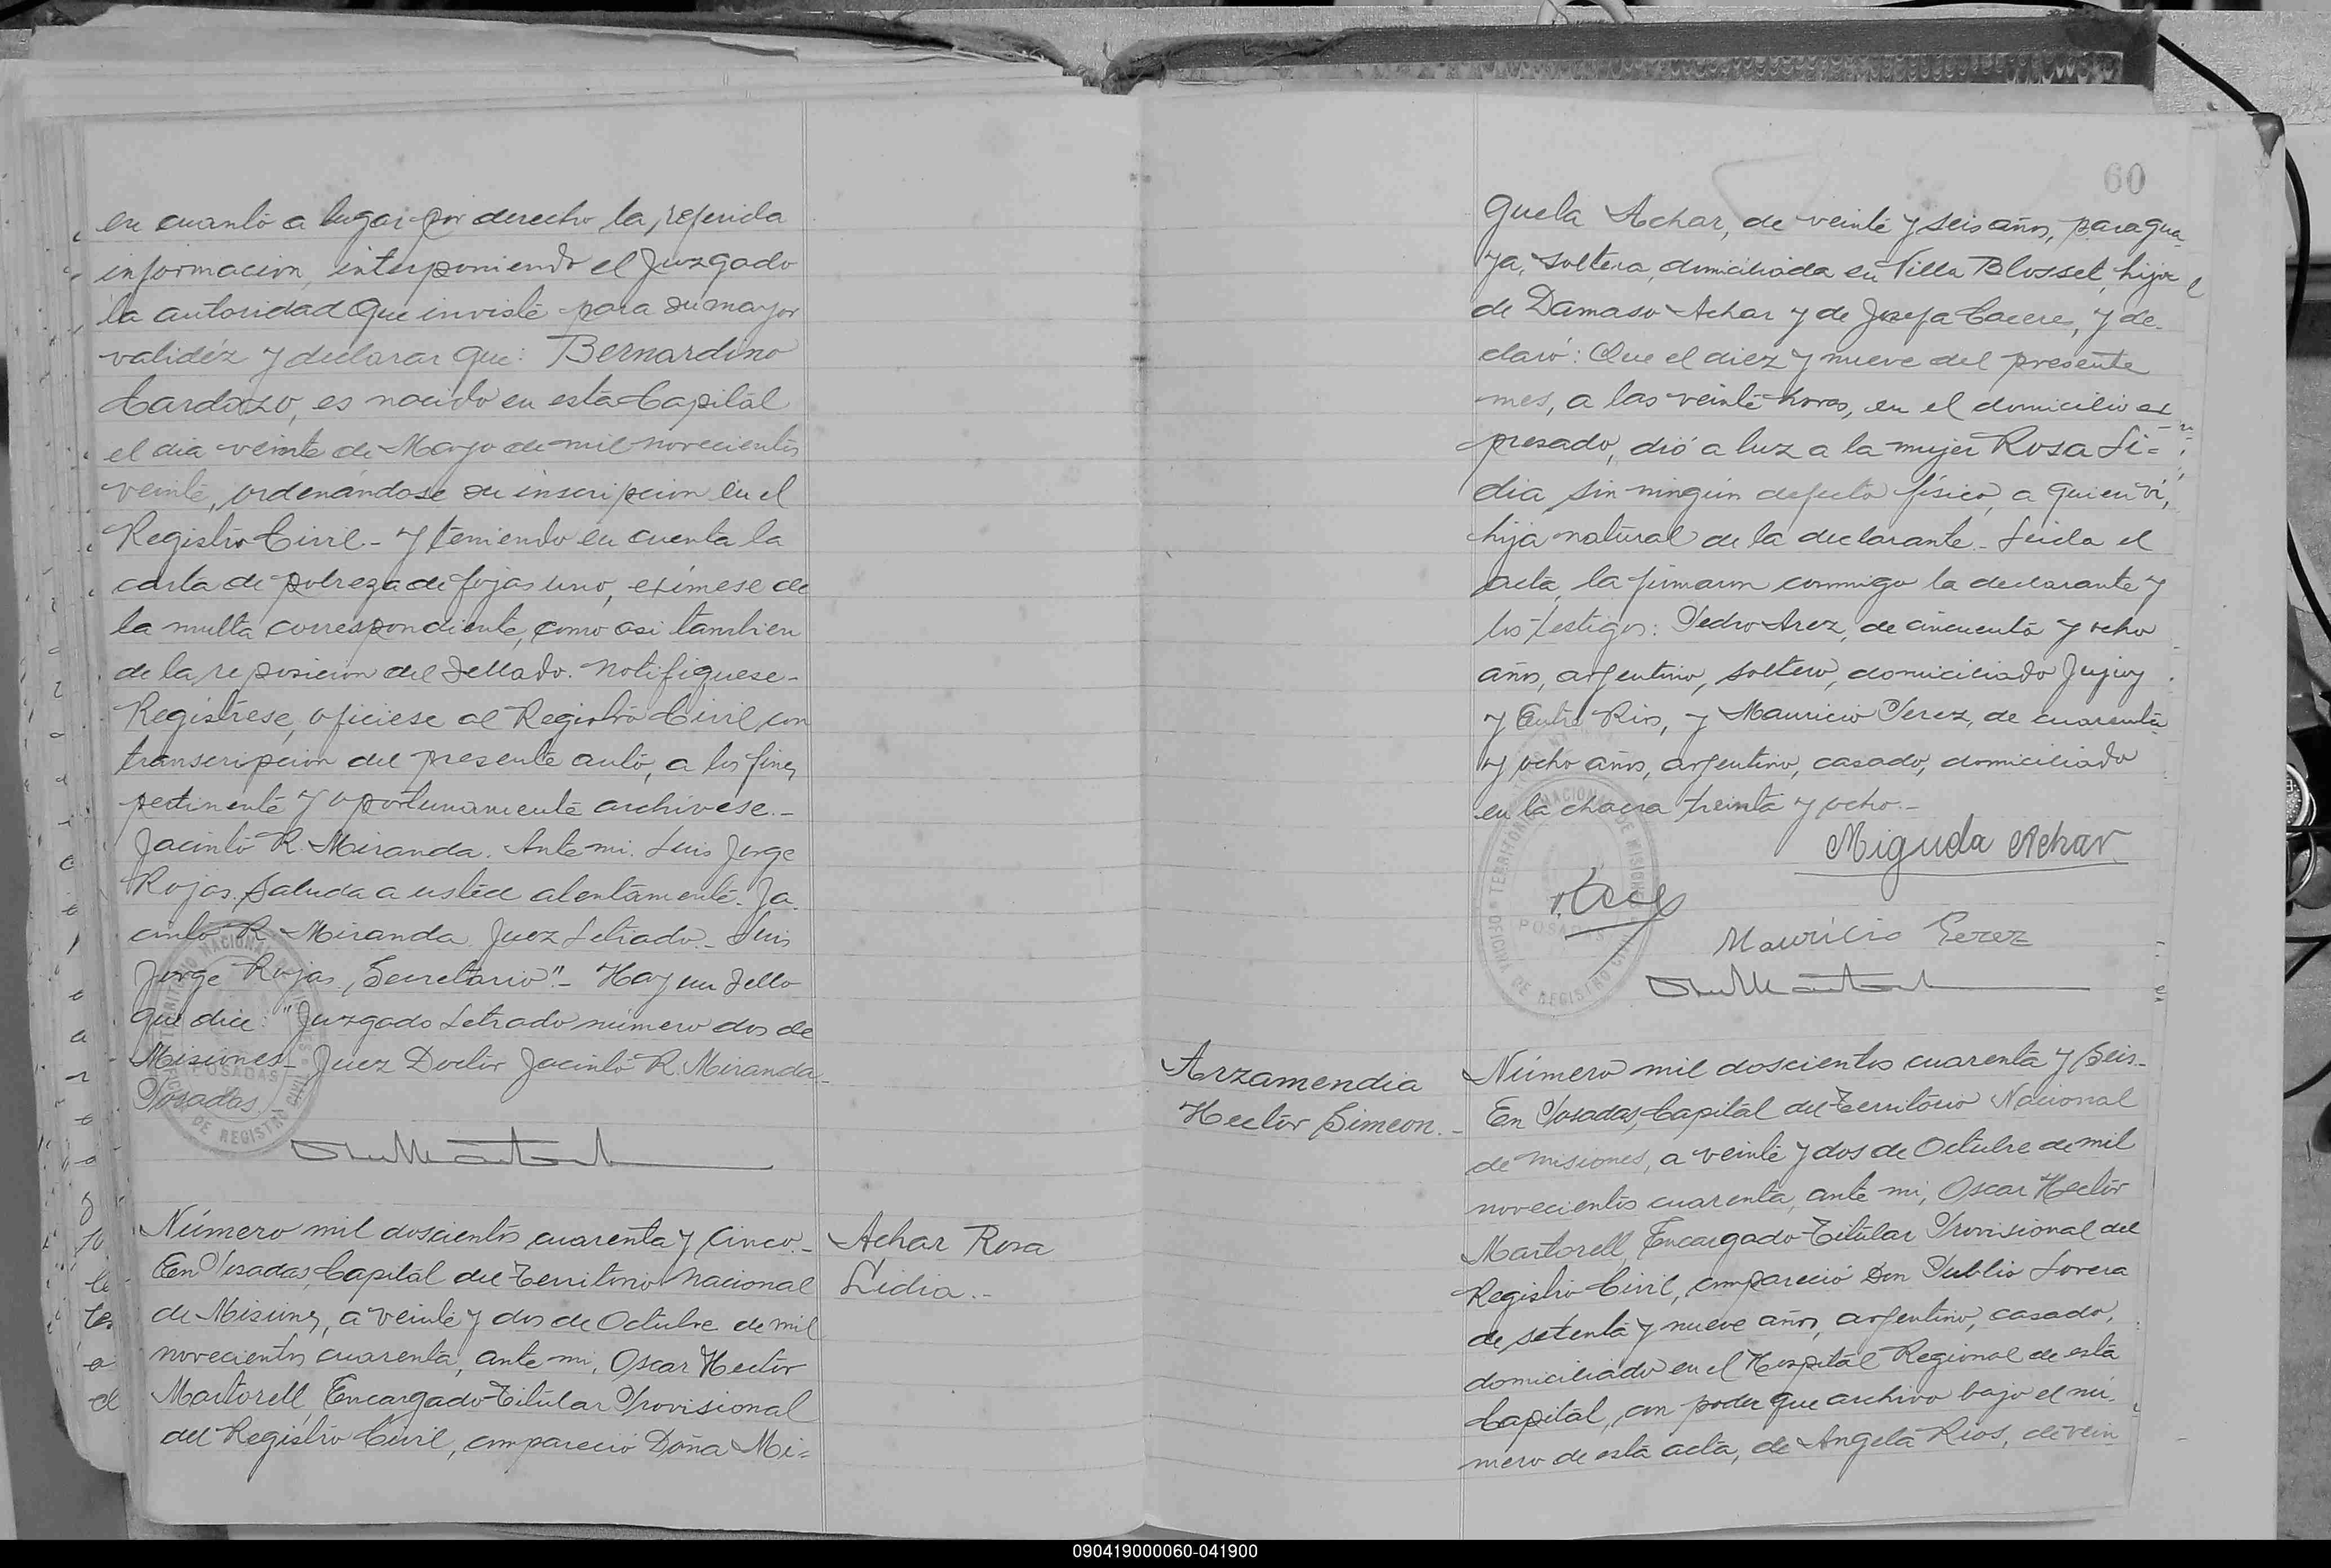 en cuanto a lugar por derecho la referida
informacion, interponiendo el Juzgado
la autoridad que inviste para su mayor
validéz y declarar que: Bernardino
Cardozo, es nacido en esta Capital
el dia veinte de Mayo de mil novecientos
veinte, ordenándose su inscripcion en el
Registro Civil - y teniendo en cuenta la
carta de pobreza de fojas uno, exímese de
la multa correspondiente, como asi tambien
de la reposicion del sellado. Notifiquese -
Registrese, oficiese al Registro Civil con
transcripcion del presente auto, a los fines
pertinente y oportunamente archivese. -
Jacinto R. Miranda. Ante mi. Luis Jorge
Rojas. Saluda a usted atentamente. Ja-
cinto R. Miranda Juez Letrado - Luis
Jorge Rojas, Secretario". - Hay un sello
que dice: "Juzgado Letrado número dos de
Misiones - Juez Doctor Jacinto R. Miranda -
Posadas.
Número mil doscientos cuarenta y cinco. -
En Posadas, Capital del Territorio Nacional
de Misiones, a veinte y dos de Octubre de mil
novecientos cuarenta, ante mi, Oscar Hector
Martorell Encargado-Titular Provisional
del Registro Civil, compareció Doña Mi=
Achar Rosa
Lidia. -
60
guela Achar, de veinte y seis años, paragua-
ya, soltera, domiciliada en Villa Blosset, hija
de Damaso Achar y de Josefa Cacere, y de-
claró: Que el diez y nueve del presente
mes, a las veinte horas, en el domicilio ex-
presado, dió a luz a la mujer Rosa Li=
dia sin ningún defecto físico, a quien ví,
hija natural de la declarante. Leida el
acta, la firmaron conmigo la declarante y
los testigos: Pedro Arez, de cincuenta y ocho
años, argentino, soltero, domiciliado Jujuy
y Entre Rios, y Mauricio Perez, de cuarenta
y ocho años, argentino, casado, domiciliado
en la chacra treinta y ocho. -
Miguela Achar
Mauricio Perez
TERRITORIO NACIONAL DE MISIONES
POSADAS
OFICINA DE REGISTRO CIVIL
Arzamendia
Hector Simeon. -
Número mil doscientos cuarenta y seis -
En Posadas, Capital del Territorio Nacional
de Misiones, a veinte y dos de Octubre de mil
novecientos cuarenta, ante mi, Oscar Hector
Martorell, Encargado-Titular Provisional del
Registro Civil, compareció Don Publio Lovera
de setenta y nueve años, argentino, casado,
domiciliado en el Hospital Regional de esta
Capital, con poder que archivo bajo el nú-
mero de esta acta, de Angela Rios, de vein
090419000060-041900